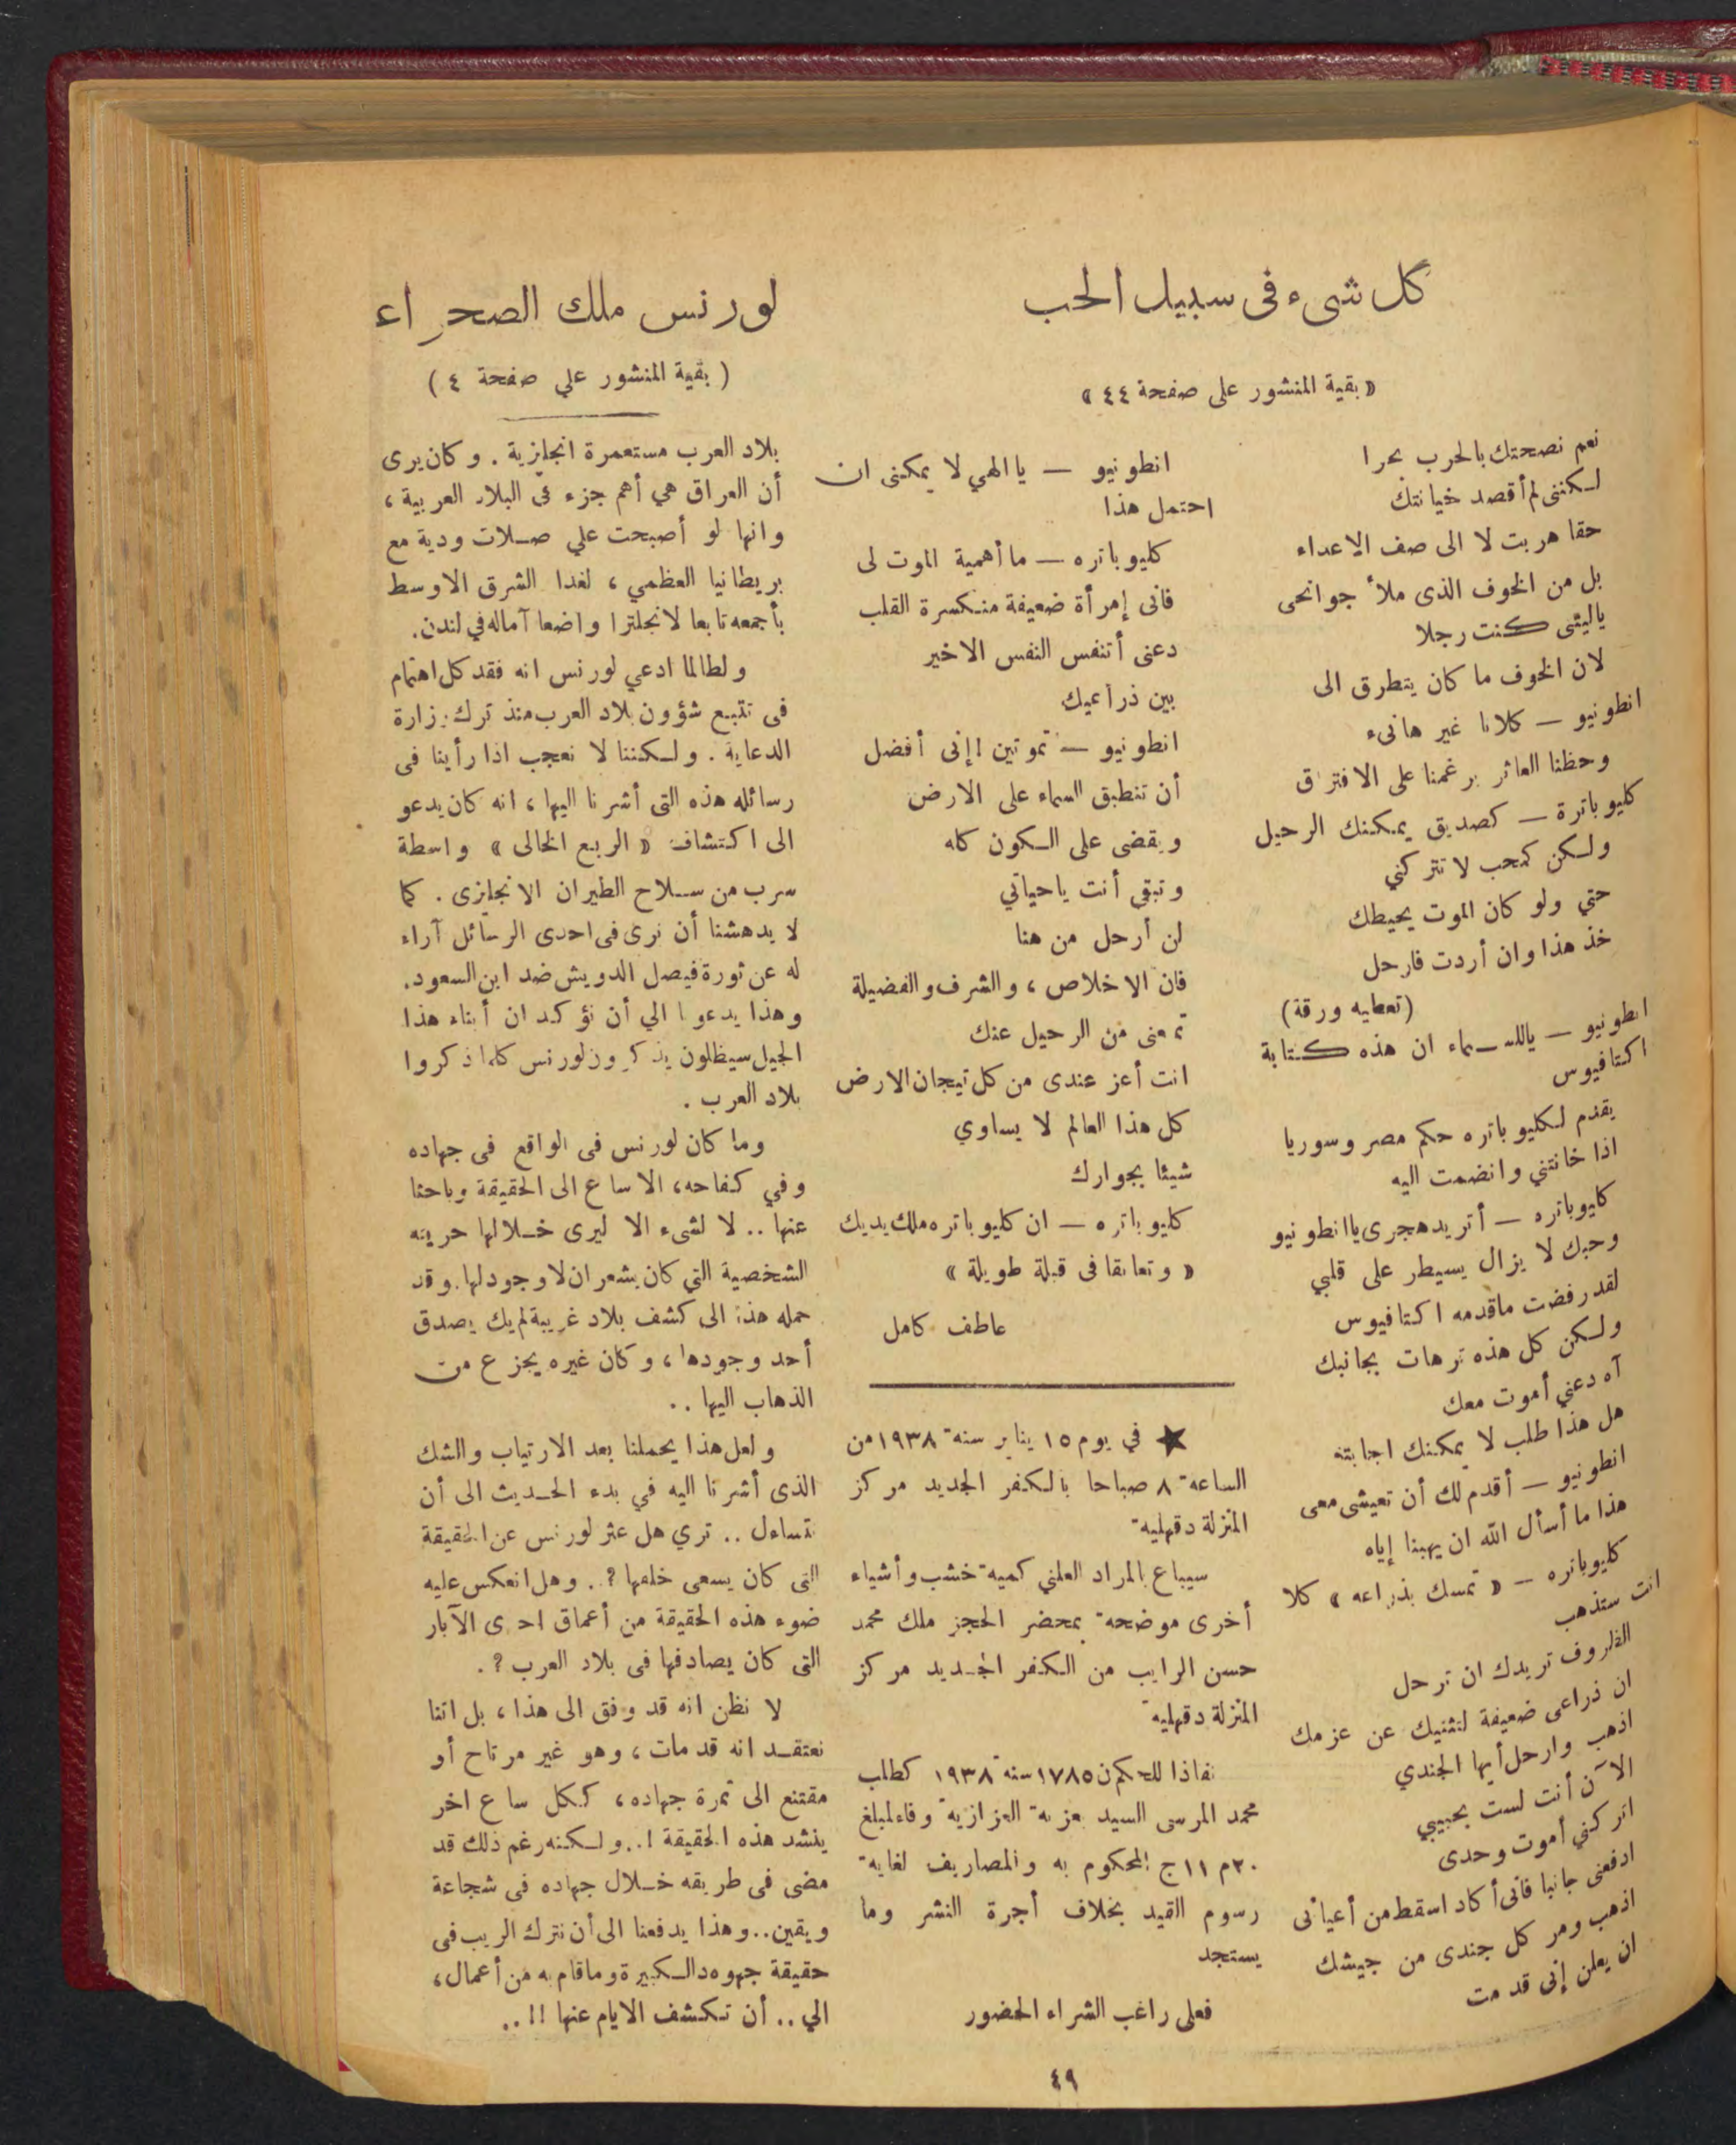 كل شىء فى سبيل الحب
« بقية المنشور على صفحة ٤٤ »
نعم نصحتك بالحرب بحرا
لكننى لم أقصد خيانتك
حقا هربت لا الى صف الاعداء
بل من الخوف الذى ملأ جوانحى
ياليتنى كنت رجلا
لان الخوف ما كان يتطرق الى
انطونيو — كلانا غير هانىء
وحظنا العاثر يرغمنا على الافتراق
كليوباترة — كصديق يمكنك الرحيل
ولكن كمحب لا تتركني
حتي ولو كان الموت يحيطك
خذ هذا وان أردت فارحل
(تعطيه ورقة)
انطونيو — ياللسماء ان هذه كتابة
اكتافيوس
يقدم لكليوباتره حكم مصر وسوريا
اذا خانتني وانضمت اليه
كليوباتره — أتريد هجرى ياانطونيو
وحبك لا يزال يسيطر على قلبي
لقد رفضت ماقدمه اكتافيوس
ولكن كل هذه ترهات بجانبك
آه دعني أموت معك
هل هذا طلب لا يمكنك اجابته
انطونيو — أقدم لك أن تعيشى معى
هذا ما أسأل الله ان يهبنا إياه
كليوباتره — « تمسك بذراعه » كلا
انت ستذهب
الظروف تريدك ان ترحل
ان ذراعى ضعيفة لتثنيك عن عزمك
اذهب وارحل أيها الجندي
الآن أنت لست بحبيبي
اتركني أموت وحدى
ادفعنى جانبا فانى أكاد اسقط من أعيائى
اذهب ومر كل جندى من جيشك
ان يعلن إنى قد مت
انطونيو — ياالهي لا يمكننى ان
احتمل هذا
كليوباتره — ما أهمية الموت لى
فانى إمرأة ضعيفة منكسرة القلب
دعنى أتنفس النفس الاخير
بين ذراعيك
انطونيو — تموتين ! إنى أفضل
أن تنطبق السماء على الارض
ويقضى على الكون كله
وتبقي أنت ياحياتي
لن أرحل من هنا
فان الاخلاص ، والشرف والفضيلة
تمعنى من الرحيل عنك
انت أعز عندى من كل تيجان الارض
كل هذا العالم لا يساوي
شيئا بجوارك
كليوباتره — ان كليوباتره ملك يديك
« وتعانقا فى قبلة طويلة »
عاطف كامل
★ في يوم ١٥ يناير سنة ١٩٣٨ من
الساعة ٨ صباحا بالكفر الجديد مركز
المنزلة دقهلية
سيباع بالمراد العلني كمية خشب وأشياء
أخرى موضحة بمحضر الحجز ملك محمد
حسن الرايب من الكفر الجديد مركز
المنزلة دقهلية
نفاذا للحكم ن ١٧٨٥ سنة ١٩٣٨ كطلب
محمد المرسى السيد بعزبة العزازية وفاء لمبلغ
٢٠م ١١ج المحكوم به والمصاريف لغاية
رسوم القيد بخلاف أجرة النشر وما
يستجد
فعلى راغب الشراء الحضور
لورنس ملك الصحراء
( بقية المنشور علي صفحة ٤ )
بلاد العرب مستعمرة انجليزية . وكان يرى
أن العراق هي أهم جزء فى البلاد العربية ،
وانها لو أصبحت علي صلات ودية مع
بريطانيا العظمي ، لغدا الشرق الاوسط
بأجمعه تابعا لانجلترا واضعا آماله في لندن.
ولطالما ادعي لورنس انه فقد كل اهتمام
فى تتبع شؤون بلاد العرب منذ ترك وزارة
الدعاية . ولكننا لا نعجب اذا رأينا فى
رسائله هذه التى أشرنا اليها ، انه كان يدعو
الى اكتشاف « الربع الخالى » واسطة
سرب من سلاح الطيران الانجليزى . كما
لا يدهشنا أن نرى فى احدى الرسائل آراء
له عن ثورة فيصل الدويش ضد ابن السعود.
وهذا يدعونا الي أن نؤكد ان أبناء هذا
الجيل سيظلون يذكرون لورنس كلما ذكروا
بلاد العرب .
وما كان لورنس فى الواقع فى جهاده
وفي كفاحه، الا ساع الى الحقيقة وباحثا
عنها .. لا لشىء الا ليرى خلالها حريته
الشخصية التي كان يشعر ان لا وجود لها. وقد
حمله هذا الى كشف بلاد غريبة لم يك يصدق
أحد وجودها ، وكان غيره يجزع من
الذهاب اليها ..
ولعل هذا يحملنا بعد الارتياب والشك
الذى أشرنا اليه في بدء الحديث الى أن
نتساءل .. تري هل عثر لورنس عن الحقيقة
التى كان يسعى خلفها ؟ . وهل انعكس عليه
ضوء هذه الحقيقة من أعماق احدى الآبار
التى كان يصادفها فى بلاد العرب ؟ .
لا نظن انه قد وفق الى هذا ، بل اتنا
نعتقد انه قد مات ، وهو غير مرتاح أو
مقتنع الى ثمرة جهاده ، ككل ساع اخر
ينشد هذه الحقيقة ! .. ولكنه رغم ذلك قد
مضى فى طريقه خلال جهاده فى شجاعة
ويقين .. وهذا يدفعنا الى أن نترك الريب فى
حقيقة جهوده الكبيرة وماقام به من أعمال ،
الي .. أن تكشف الايام عنها !! ..
٤٩